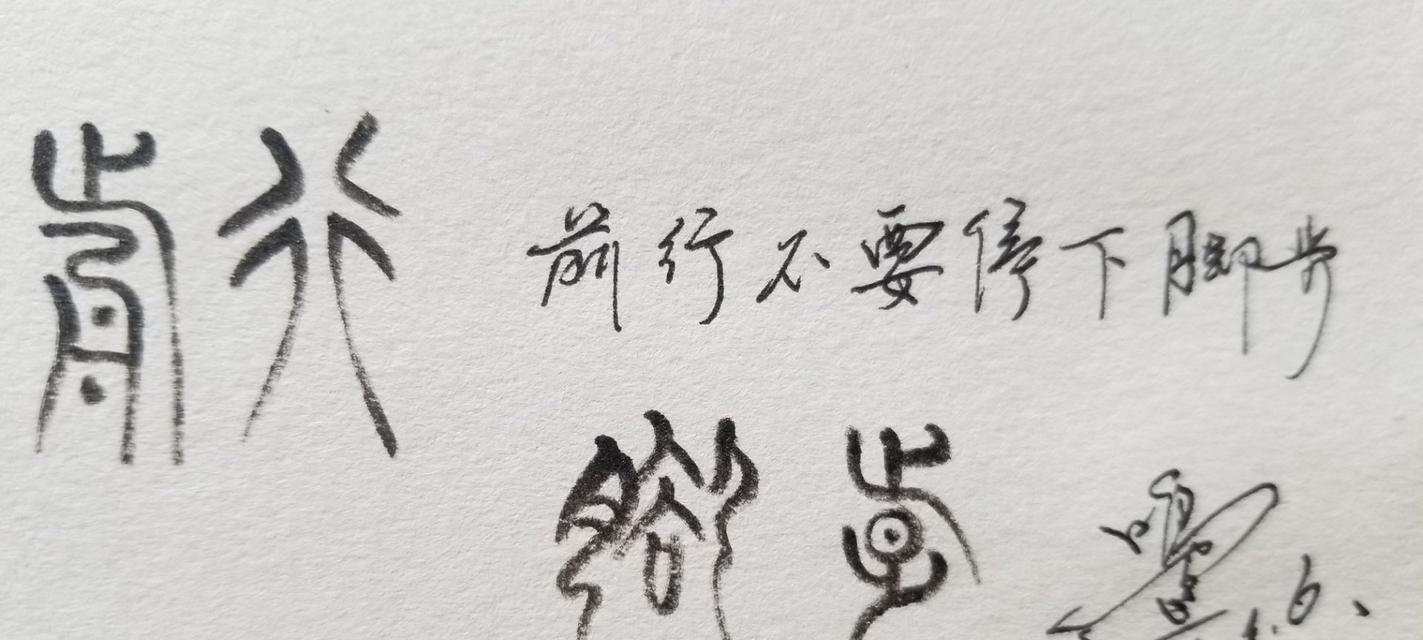 前行
前行不要停下脚步
脚步